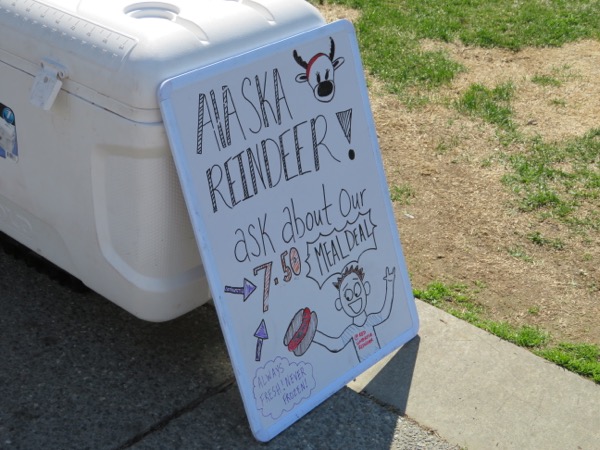 ALASKA
REINDEER!
ask about Our
7.50 MEAL DEAL
ALWAYS
FRESH! NEVER
FROZEN!